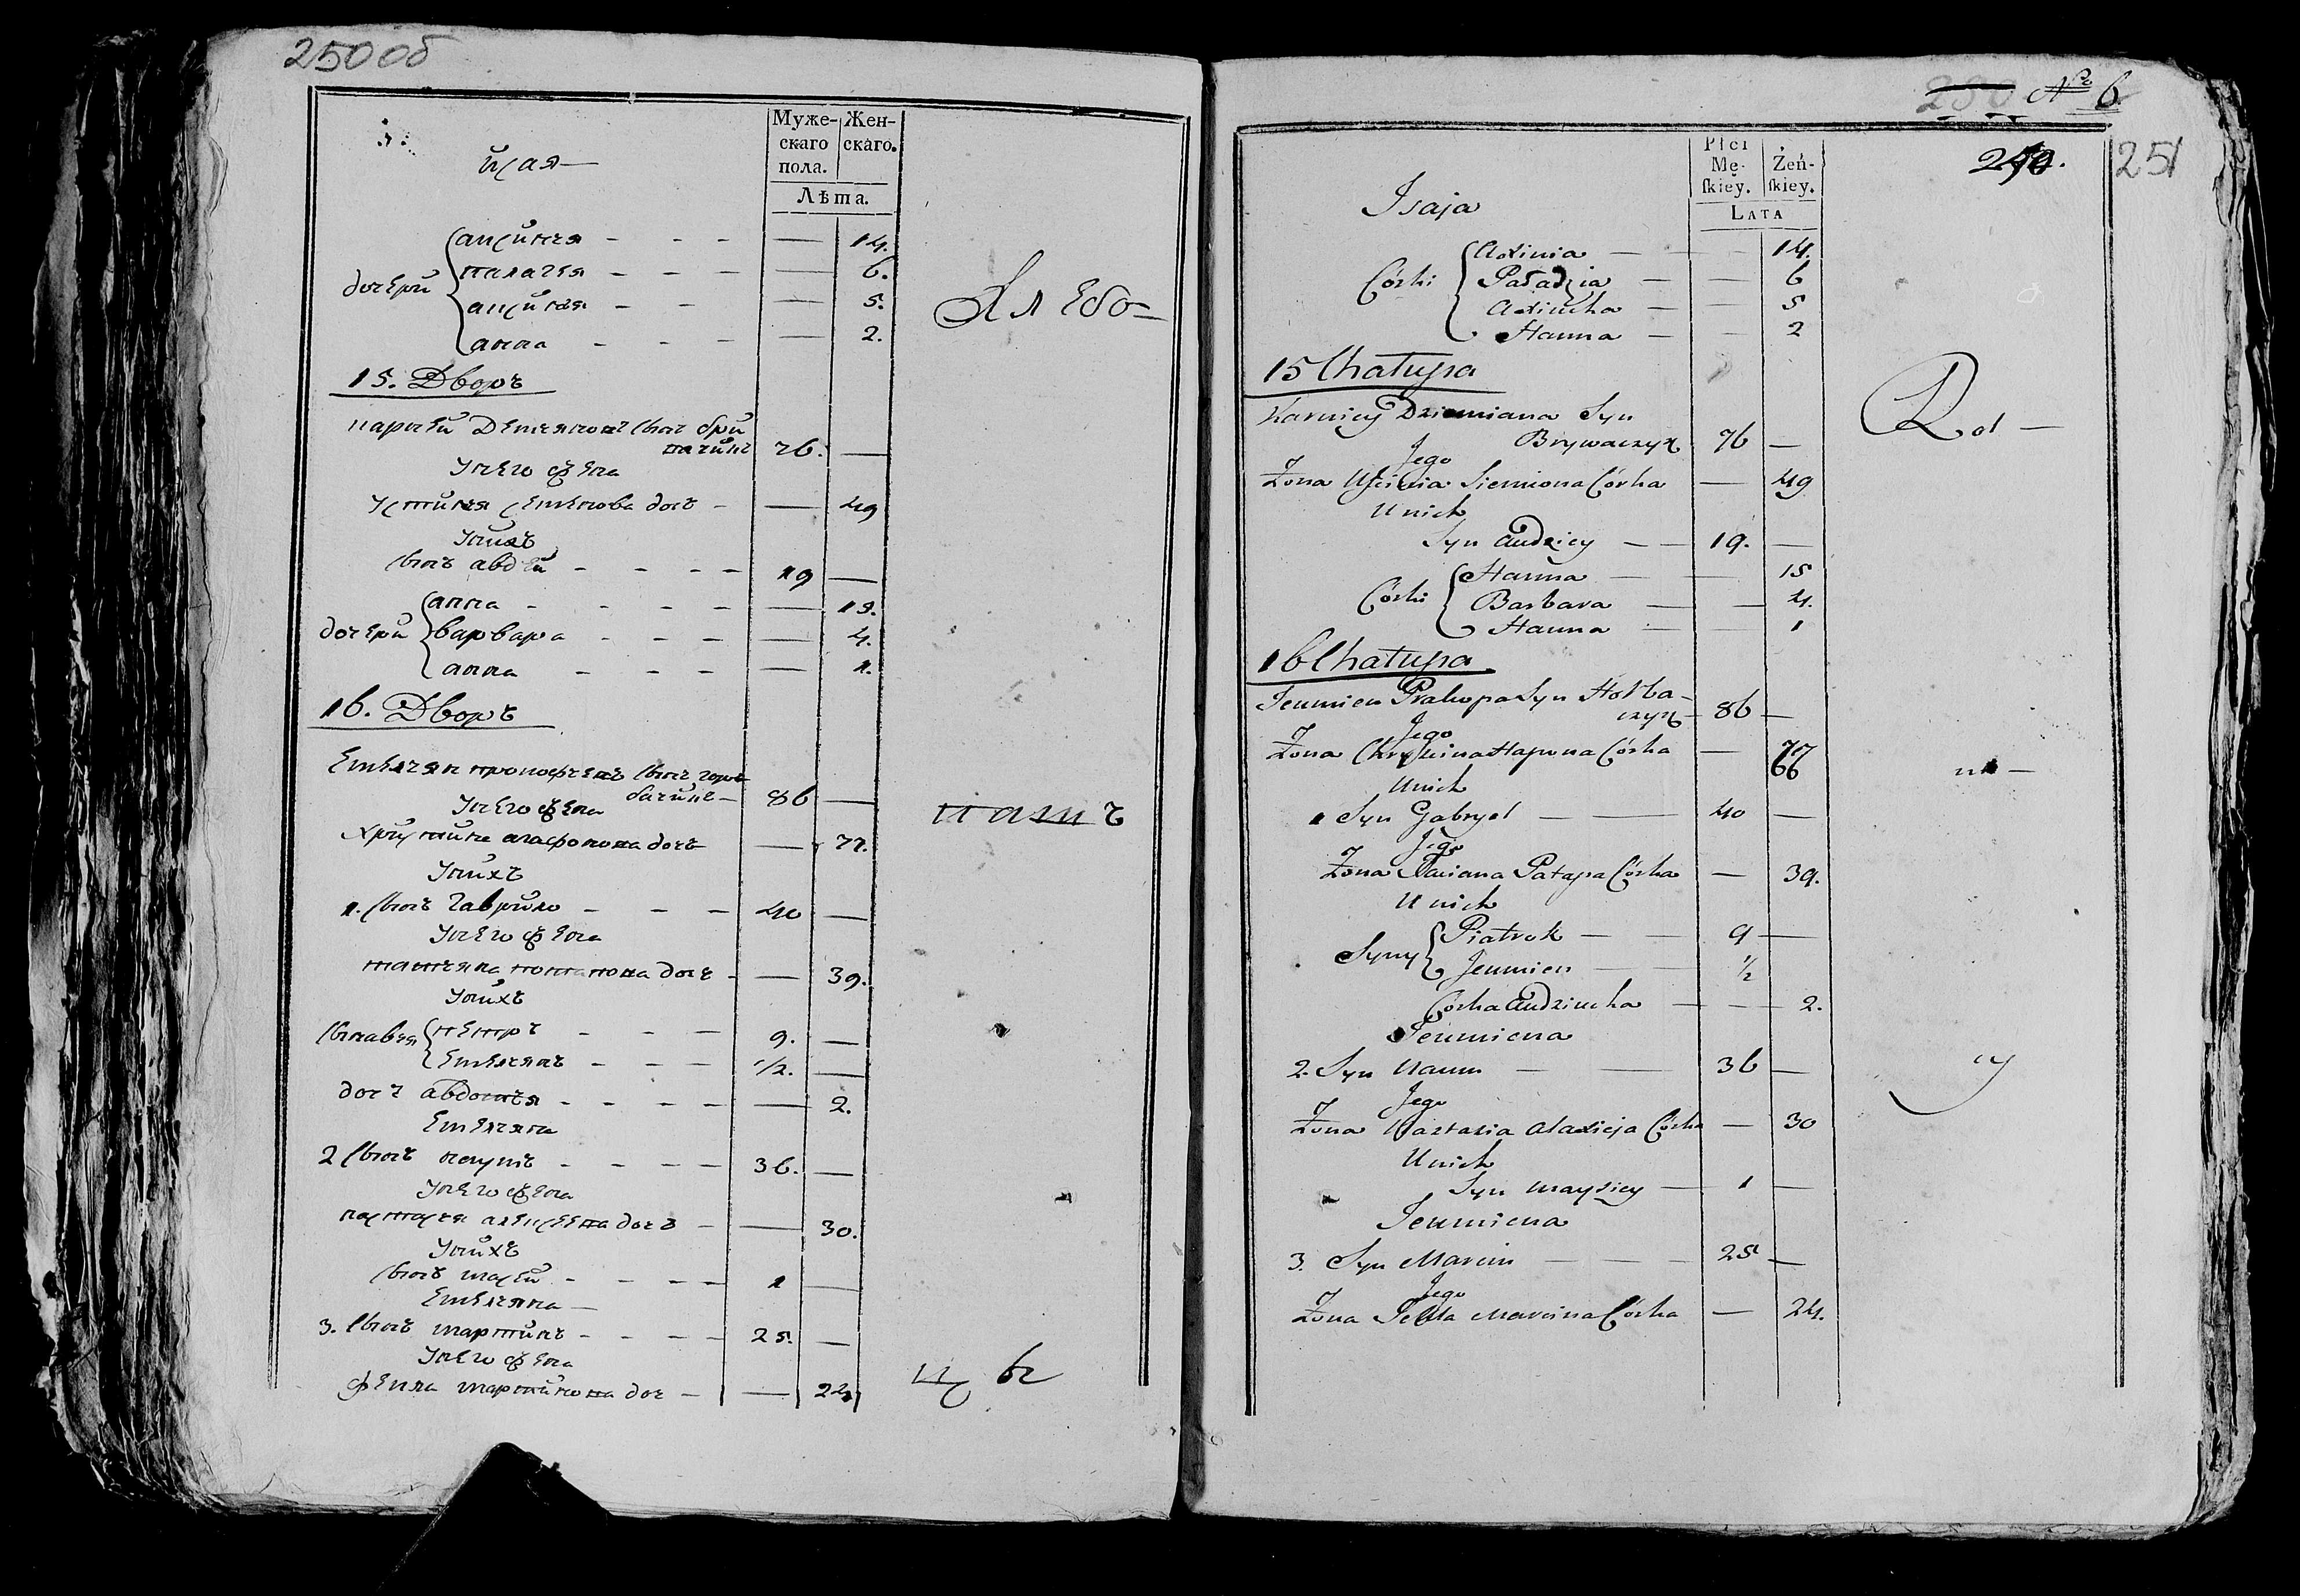 250об
Муже- Жен-
скаго скаго.
пола.
Лѣта.
Исая —
дочери
аксиния - - - — 14.
палагея - - - — 6.
аксиния - - — 5.
анна - - - — 2.
15. Дворъ
Демянов сынъ бри
вачикъ 76. —
у него жена
устиния семенова дочь - — 49
у них
сынъ авдей - - - - 19 —
дочери
анна - - - - — 15.
варвара - - - — 4.
анна - - - — 1.
16. Дворъ
Емелян прокофьевъ сынъ горь
бачикъ - 86 —
у него жена
христина агафонова дочь — 77.
у нихъ
1. сынъ гаврило - - - 40 —
у него жена
татьяна потапова дочь - — 39.
у нихъ
сыновья
петръ - - - 9. —
Емельянъ - - - 1/2. —
дочь авдотия - - - - — 2.
Емеляна
2 сынъ наумъ - - - - 36. —
у него жена
настасия алексеева дочь - — 30.
у нихъ
сынъ - - - - 1 —
Емеляна —
3. сынъ мартинъ - - - - 25. —
у него жена
фекла мартинова доч - — 24
№ 6
251
Płci
Mę- Żeń-
skiey. skiey.
LATA
Isaja
Córki
Axinia — — 14.
Paładzia — — 6
Axiucha — — 5
Hanna — — 2
15 Chatupa
Karniey Dziemiana Syn
Brywaczyk 76 —
Jego
Żona Uścinia Siemiona Córka — 49
U nich
Syn Audziey — — 19. —
Córki
Hanna — — 15
Barbara — — 4.
Hanna — — 1
16 Chatupa
Jeumien Prakopa Syn Horba-
czyk — 86 —
Jego
Żona Chryścina Hapona Córka — 77
66
U nich
1 Syn Gabryel — — 40 —
Jego
Żona Taciana Patapa Córka — 39.
U nich
Syny
Piatruk — — 9 —
Jeumien — — 1/2
Córka Audziucha — — 2.
Jeumiena
2. Syn Naum — — 36 —
Jego
Żona Nastazia Alaxieja Córka — 30
U nich
Syn Mayziey — 1 —
Jeumiena
3. Syn Marcin — — 25 —
Jego
Żona Tekla Marcina Córka — 24.